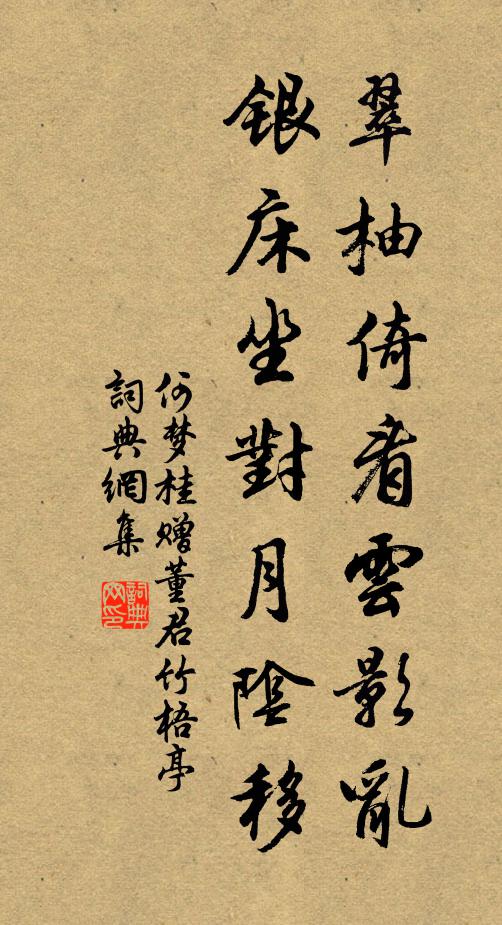 翠柚倚看雲影亂
銀床坐對月陰移
何梦桂赠董君竹梧亭
詞典網集
詞典网印